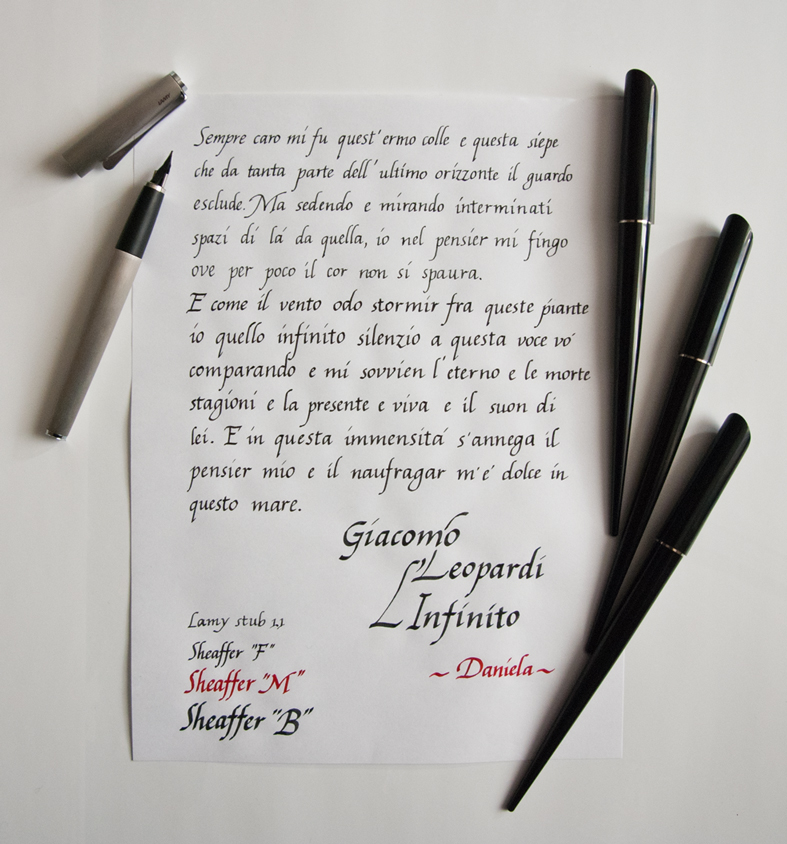 LAMY
Sempre caro mi fu quest'ermo colle e questa siepe
che da tanta parte dell'ultimo orizzonte il guardo
esclude. Ma sedendo e mirando interminati
spazi di lá da quella, io nel pensier mi fingo
ove per poco il cor non si spaura.
E come il vento odo stormir fra queste piante
io quello infinito silenzio a questa voce vo'
comparando e mi sovvien l'eterno e le morte
stagioni e la presente e viva e il suon di
lei. E in questa immensitá s'annega il
pensier mio e il naufragar m'e' dolce in
questo mare.
Giacomo
Leopardi
L'Infinito
Lamy stub 1,1
Sheaffer "F"
Sheaffer "M"
Sheaffer "B"
~ Daniela ~